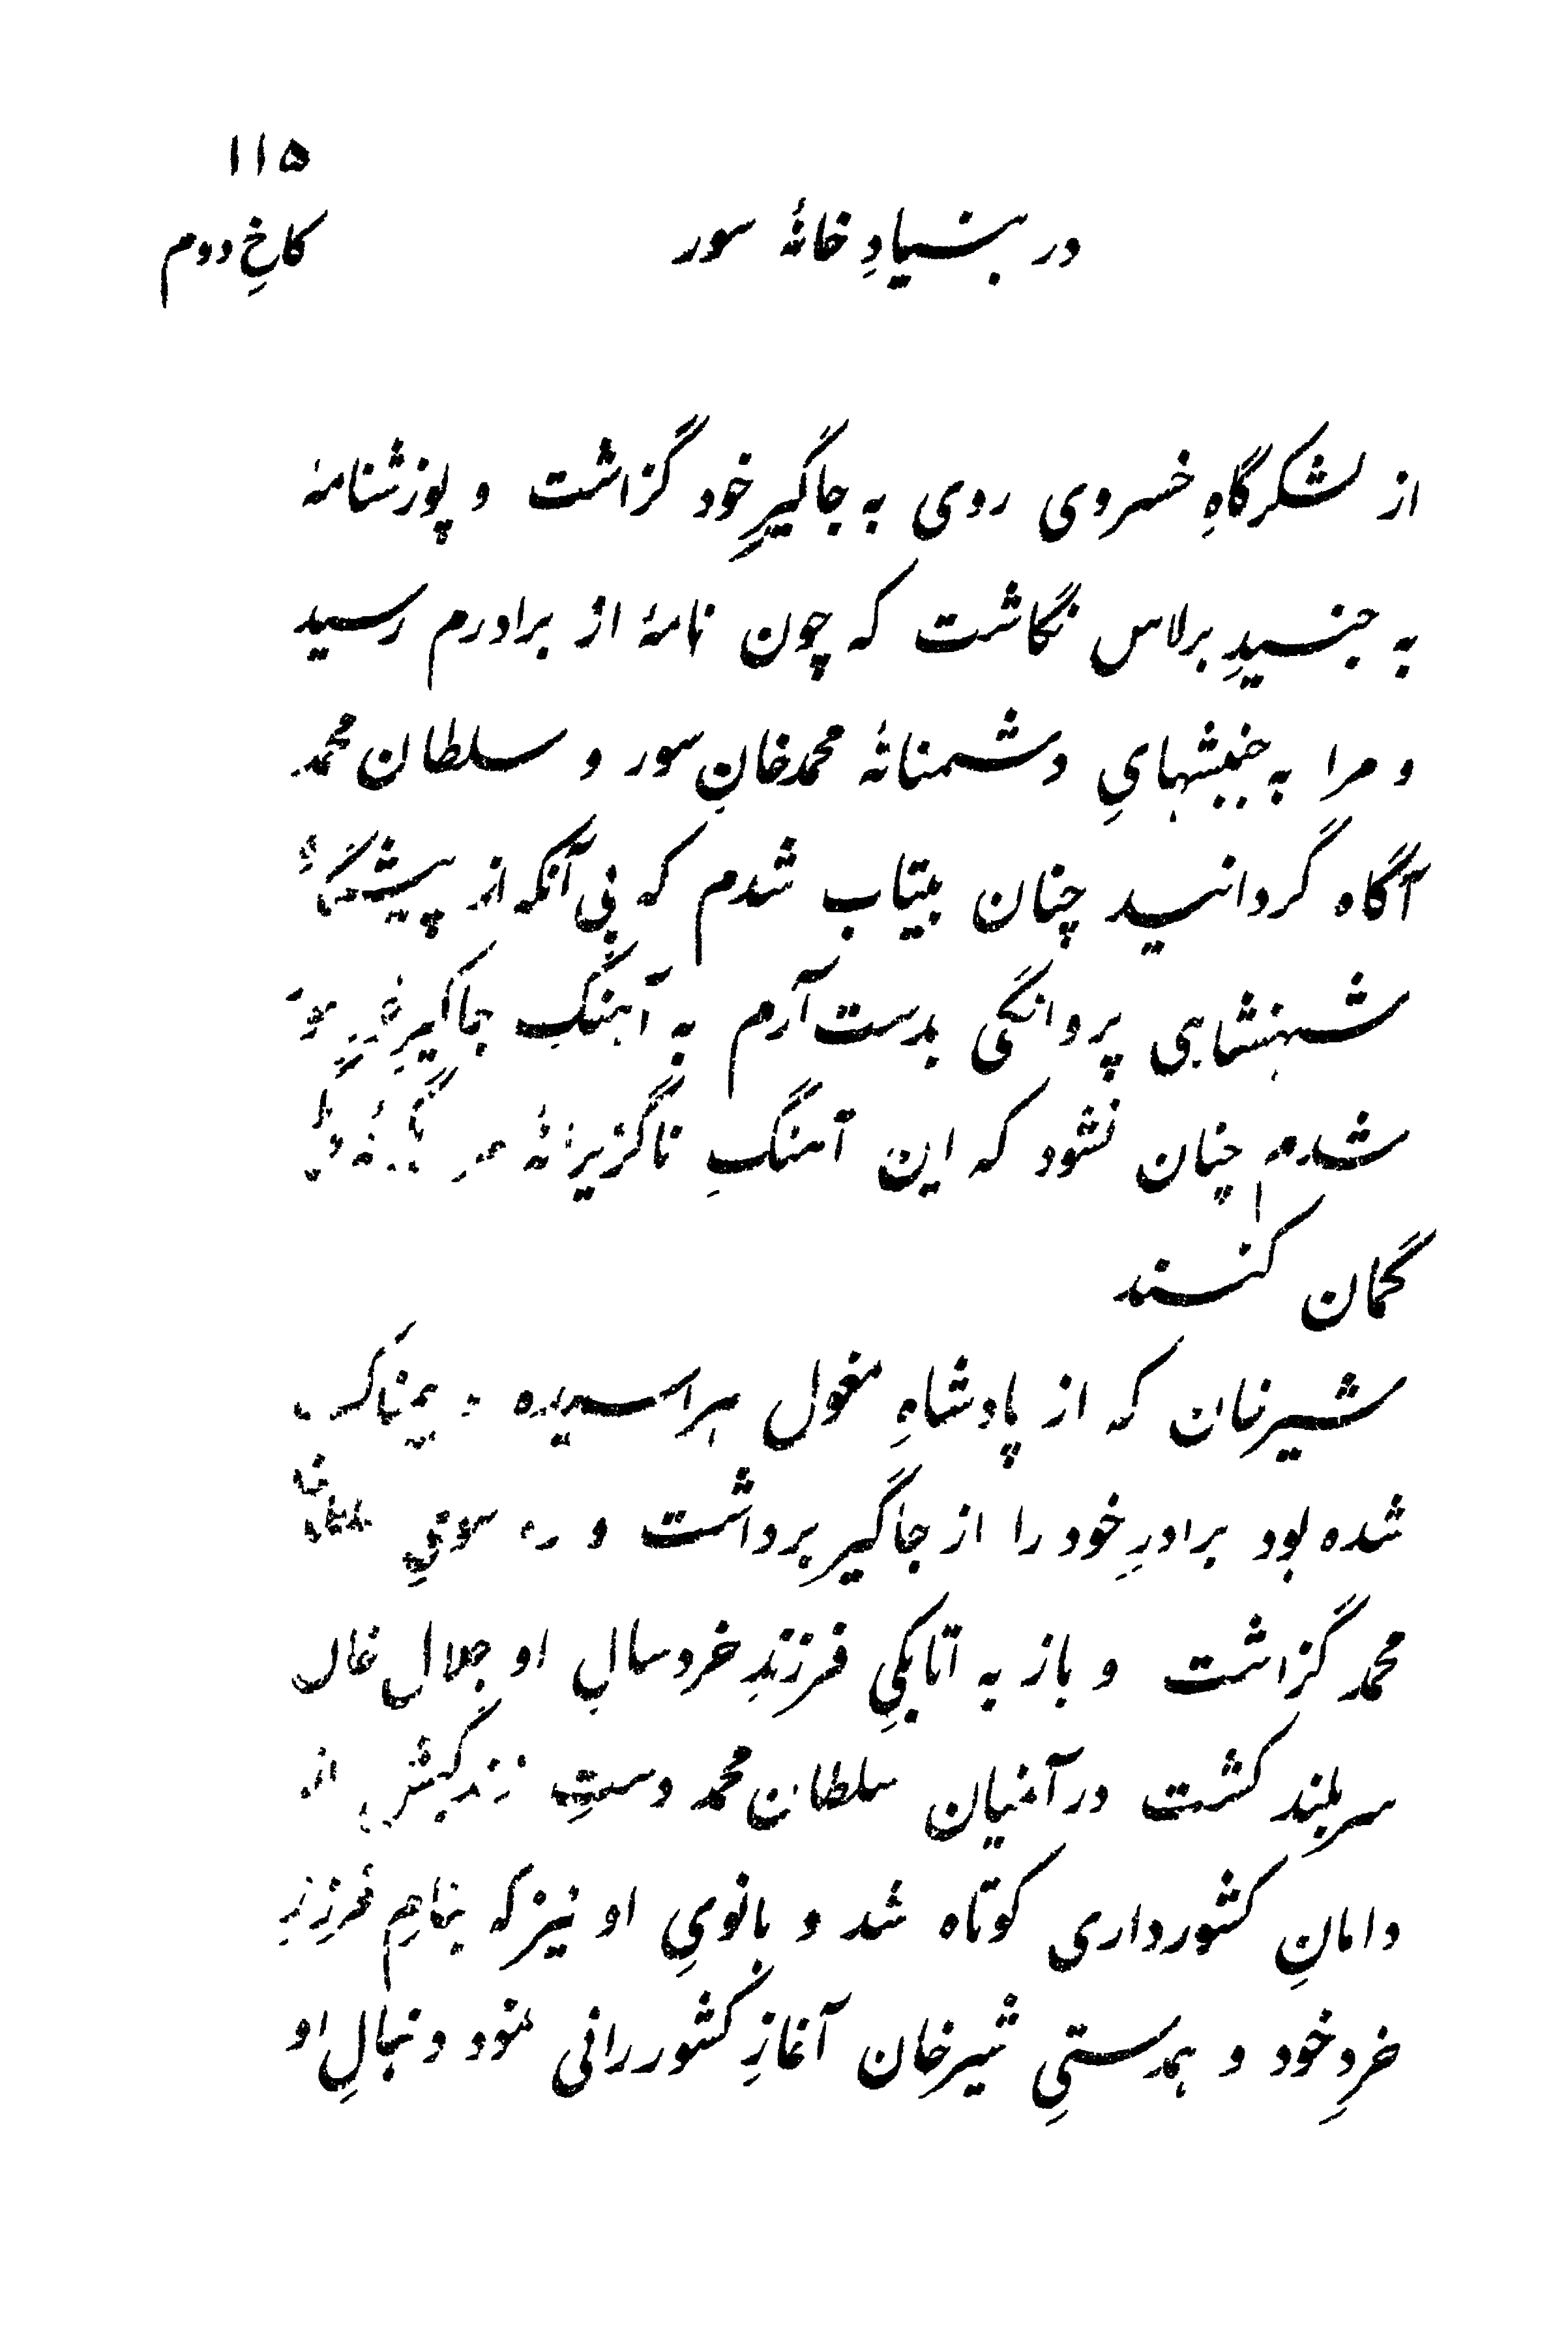 ۱۱۵
در بنیادِ خانهٔ سور
کاخِ دوم
از لشکرگاهِ خسروی روی به جاگیرِ خود گزاشت و پوزشنامهٔ
به جنیدِ برلاس نگاشت که چون نامهٔ از برادرم رسید
و مرا به جنبشهایِ دشمنانهٔ محمد خانِ سور و سلطان محمد
آگاه گردانید چنان بیتاب شدم که بی آنکه از پیشگاهٔ
شهنشاهی پروانگی بدست آرم به آهنگِ جاگیرِ
شدم چنان نشود که این آهنگِ ناگزیرانهٔ
گمان کنند
شیرخان که از پادشاهِ مغول هراسیده و بیمناک
شده بود برادرِ خود را از جاگیر برداشت و ره سویِ سلطان
محمد گزاشت و باز به اتابکیِ فرزندِ خردسالِ او جلال خان
سربلند گشت در آنمیان سلطان محمد دستِ زندگیش از
دامانِ کشورداری کوتاه شد و بانویِ او نیز که بنامِ فرزندِ
خردِ خود و همدستیِ شیرخان آغازِ کشوررانی نمود دنبالِ او